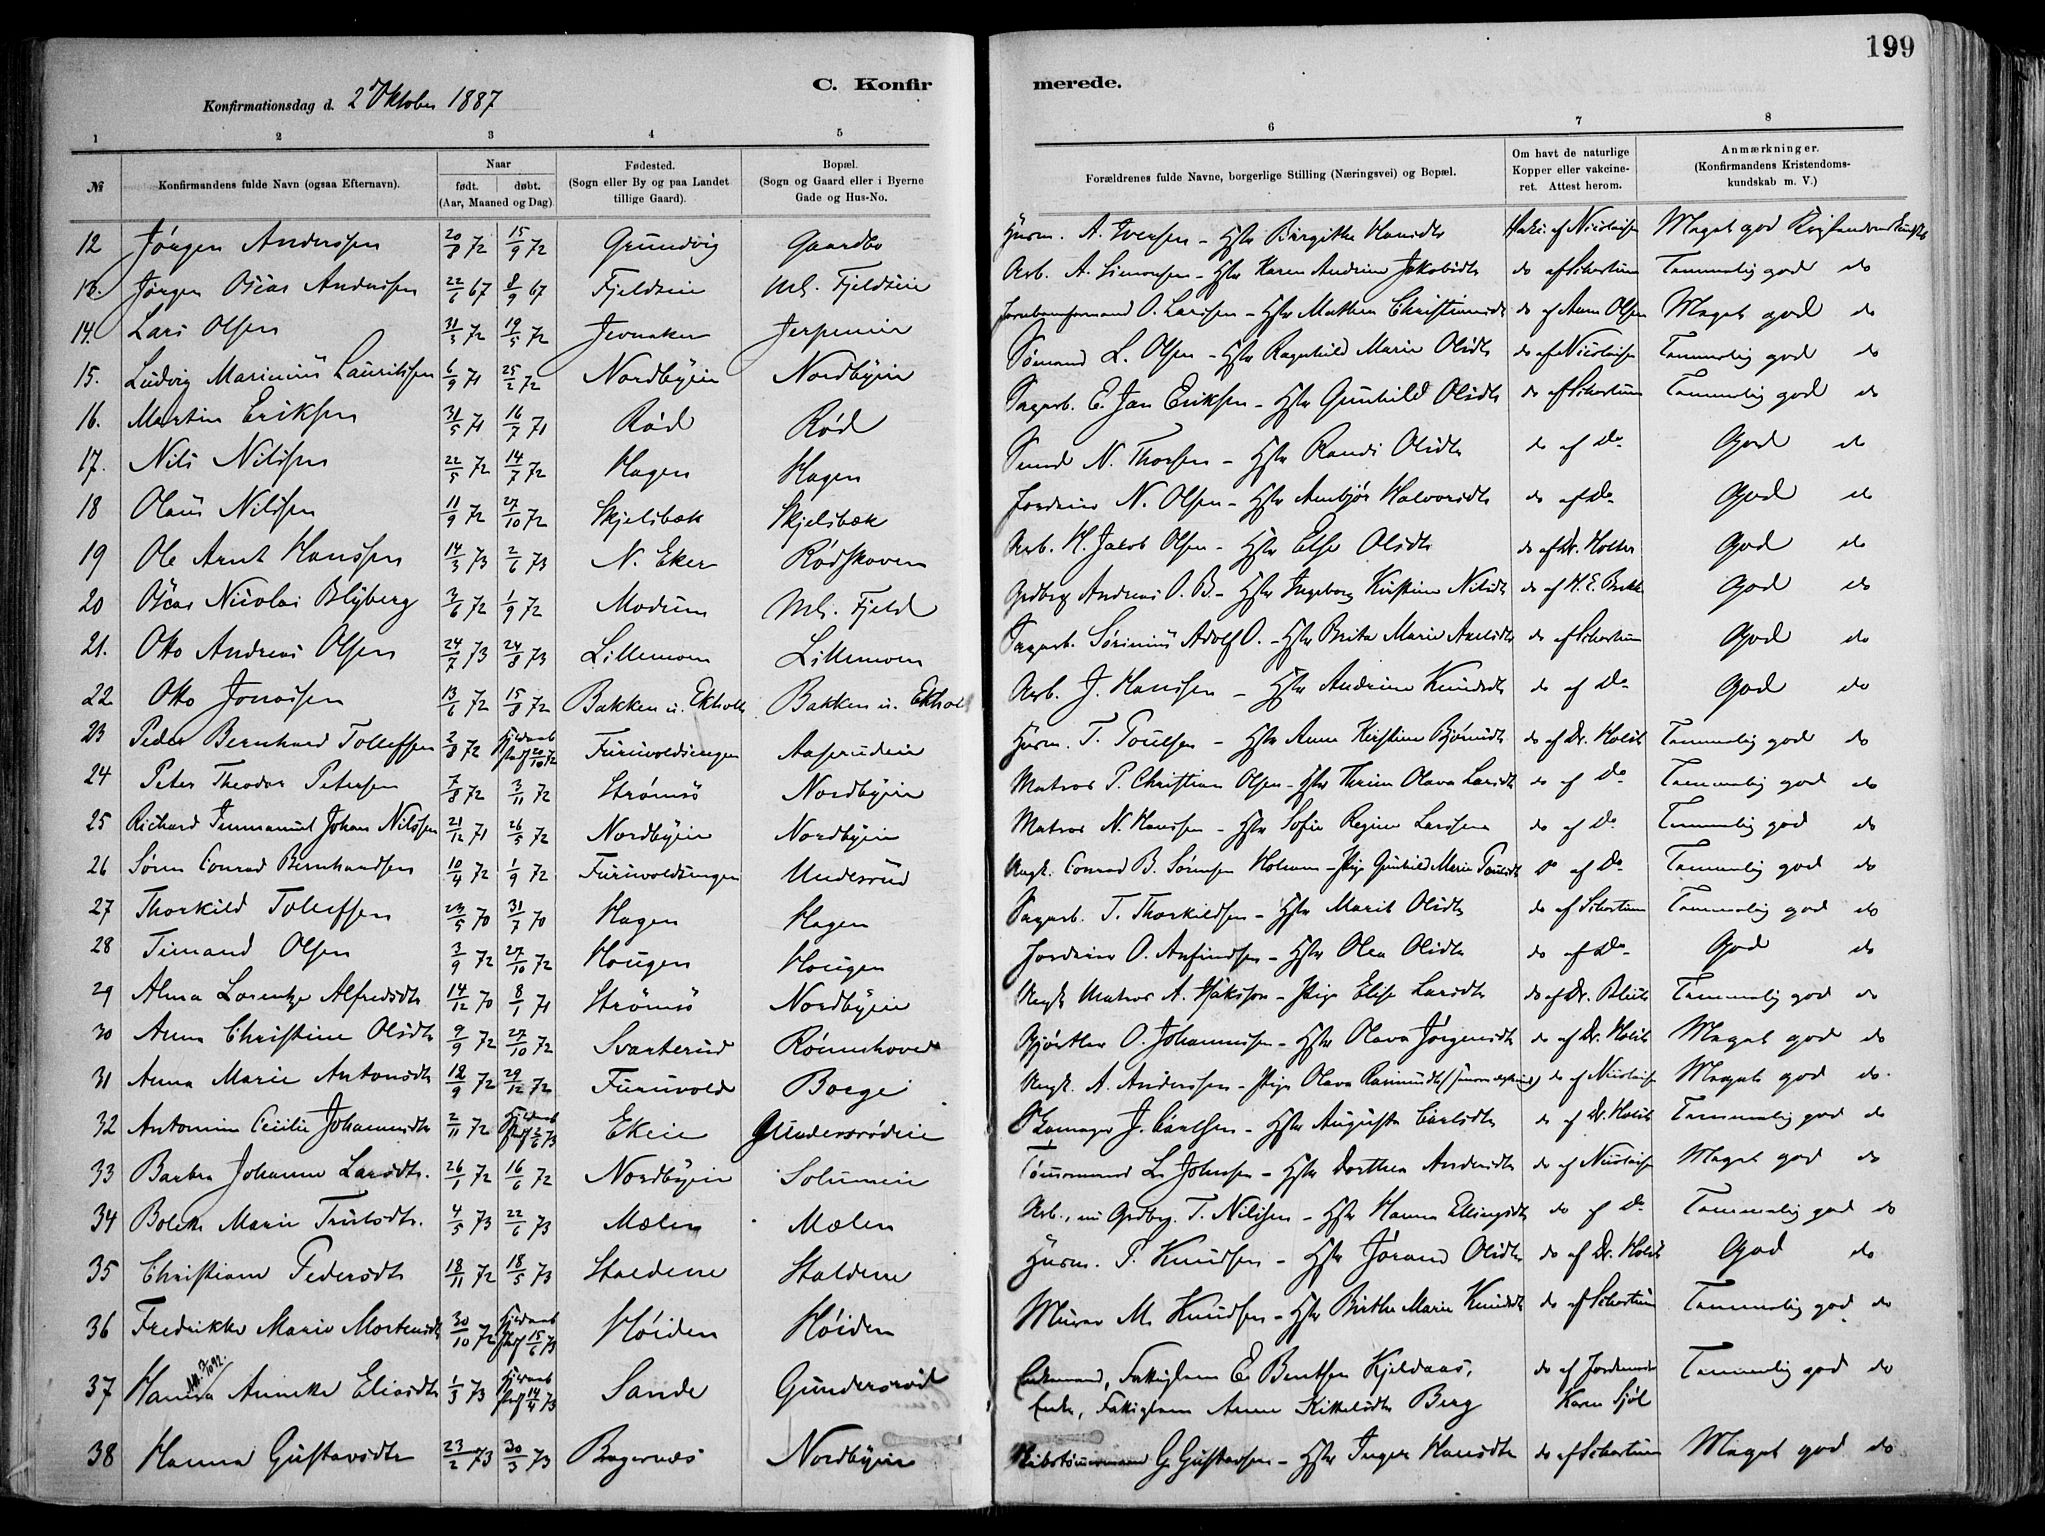 199
C. Konfirmerede.
Konfirmationsdag d. 2 Oktober 1887
1 2 3 4 5 6 7 8
№ Konfirmandens fulde Navn (ogsaa Efternavn). Naar født. døbt. (Aar, Maaned og Dag) Fødested. (Sogn eller By og paa Landet tillige Gaard). Bopæl. (Sogn og Gaard eller i Byerne Gade og Hus-No. Forældrenes fulde Navne, borgerlige Stilling (Næringsvei) og Bopæl. Om havt de naturlige Kopper eller vakcineret. Attest herom. Anmærkninger. (Konfirmandens Kristendomskundskab m. V.)
12 Jörgen Anderssen 20/8 72 15/9 72 Grundvig Gaardbo Husm. A. Iversen - Hstr Birgithe Hansdtr af Nicolaisen Meget god Kristendomskundskab
13. Jörgen Oscar Anderssen 22/6 67 8/9 67 Fjeldeie Ml. Fjeldeie Arb. A. Simonsen - Hstr Karen Andrine Jakobsdtr do af Schartum Temmelig god do
14. Lars Olsen 31/3 72 19/5 72 Jevnaker O. Larssen - Hstr Mathea Christiansdtr do af Anne Olsen Meget god do
15. Ludvig Marinius Lauritssen 6/9 71 25/2 72 Nordbyeie Nordbyeie Sømand L. Olsen - Hstr Ragnhild Marie Olsdtr do af Nicolaisen Temmelig god do
16. Martin Eriksen 31/5 71 16/7 71 Rød Rød Sagarb. E. Jan Eriksen - Hstr Gunhild Olsdtr do af Schartum Temmelig god do
17. Nils Nilssen 22/5 72 14/7 72 Hagen Hagen N. Thorsen - Hstr Randi Olsdtr do af Do God do
18 Olaus Nilssen 11/9 72 27/10 72 Skjelsbæk Skjelsbæk Jordeier N. Olsen - Hstr Anbjør Halvorsdtr do af Do God do
19 Ole Arnt Hanssen 14/3 73 2/6 73 N. Eker Rødskoven Arb. H. Jakob Olsen - Hstr Else Olsdtr do af Dr. Holter God do
20 Oscar Nicolai Blyberg 3/6 72 1/9 72 Modum Ml. Fjeld Grdbrg Andreas O. B. - Hstr Ingeborg Kirstine Nilsdtr do af H. E. God do
21. Otto Andreas Olsen 24/7 73 24/8 73 Lillemoen Lillemoen Sagarb. Sørinius Adolf O. - Hstr Brita Marie Axelsdtr do af Schartum God do
22 Otto Jonassen 13/6 72 15/8 72 Bakken u. Ekholt Bakken u. Ekholt Arb. J. Hanssen - Hstr Andrine Knudsdtr do af Do God do
23 Peder Bernhard Tollefsen 2/8 72 hjdøbt stadf 20/10 72 Furuvoldengen Aaserudeie Husm. T. Poulsen - Hstr Anne Kirstine Bjørnsdtr do af Dr. Holst Temmelig god do
24 Peter Theodor Petersen 7/8 72 3/11 72 Strømsö Nordbyeie Matros P. Christian Olsen - Hstr Thrine Olava Larsdtr do af Do Temmelig god do
25 Richard Immanuel Johan Nilssen 21/12 71 26/5 72 Nordbyeie Nordbyeie Matros N. Hanssen - Hstr Sofie Regine Larssen do af Do Temmelig god do
26 Sören Conrad Bernhardsen 10/4 72 1/9 72 Furuvoldengen Undesrud Ungk. Conrad B. Sörensen - Pige Gunhild Marie Poulsdtr Do af Do Temmelig god do
27 Thorkild Tollefsen 23/5 70 31/7 70 Hagen Hagen Sagarb. T. Thorkildsen - Hstr Marit Olsdtr do af Schartum Temmelig god do
28 Timand Olsen 3/9 72 27/10 72 Hougen Hougen Jordeier O. Anfindsen - Hstr Olea Olsdtr do af Do God do
29 Alma Lorentze Alfredsdtr 14/12 70 8/1 71 Strømsö Nordbyeie Ungk Matros A. - Pige Elise Larsdtr do af Dr. Temmelig god do
30 Anne Christine Olsdtr 9/9 72 27/10 72 Svarterud Gjørtler O. Johannessen - Hstr Olava Jørgensdtr do af Dr. Holst Meget god do
31 Anna Marie Antonsdtr 12/9 72 29/12 72 Furuvold Borge Ungk. A. Anderssen - Pige Olava Rasmusdtr do af Nicolaisen Meget god do
32 Antonie Cecilie Johannesdtr 2/11 72 hjdøbt stadf 2/6 73 Ekeie Gundersrødeie Skomager J. Carlsen - Hstr Augusta Carlsdtr do af Dr. Holst Temmelig god do
33 Barbra Johanne Larsdtr. 26/1 72 16/6 72 Nordbyeie Solumeie Tømmermand L. Johnsen - Hstr Dorthea Andersdtr do af Nicolaisen Meget god do
34 Bolette Marie Trulsdtr. 4/5 73 22/6 73 Mælen Mælen Arb., nu Grdbrg. T. Nilssen - Hstr Hanna Ellingsdtr do af Do Temmelig god do
35 Christiane Pedersdtr 18/11 72 18/5 73 Staldene Staldene Husm. P. Knudsen - Hstr Jörand Olsdtr do af Dr. Holst God do
36 Fredrikke Marie Mortensdtr 30/10 72 hjdøbt stadf 15/6 73 Høiden Høiden Murer M. Knudsen - Hstr Birthe Marie Knudsdtr do af Schartum Temmelig god do
37 Hanna Annette Eliasdtr 1/3 73 hjdøbt stadf 14/4 73 Sande Gundersrød Enkemand, Fattiglem E. Bentsen Kjeldaas, do af Jordemoder Temmelig god do
Enke, Fattiglem Anne Kittelsdtr Berg Karen Sjøl
38 Hanna Gustavsdtr 23/2 73 30/3 73 Bragernæs Nordbyeie Skibstømmermand G. Gustavsen - Hstr Inger Hansdtr do af Schartum Meget god do